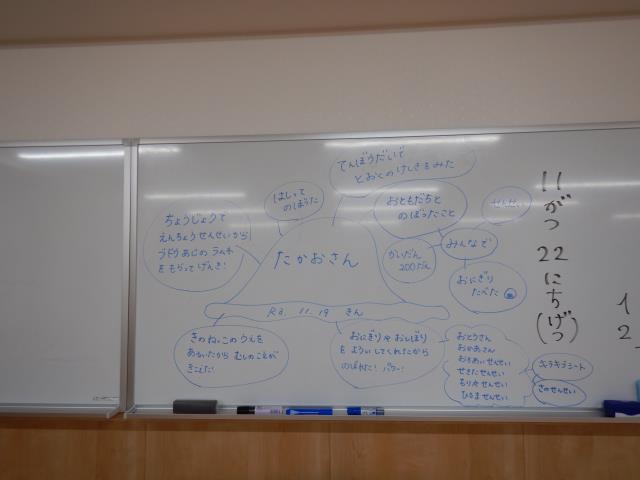 てんぼうだいで
とおくのけしきをみた
はしって
のぼった
ちょうじょうで
えんちょうせんせいから
ブドウあじのラムネ
をもらってげんき!
たかおさん
おともだちと
のぼったこと
みんなで
かいだん
200だん
おにぎり
たべた
R3. 11. 19 きん
きのねっこのうえを
あるいたから むしのことが
きこえた!
おにぎりやおしぼり
をよういしてくれたから
のぼれた! パワー!
おとうさん
おかあさん
せきたせんせい
もりやせんせい
ひるませんせい
キラキラシート
さのせんせい
11
がつ
22
にち
(げつ)
1
2